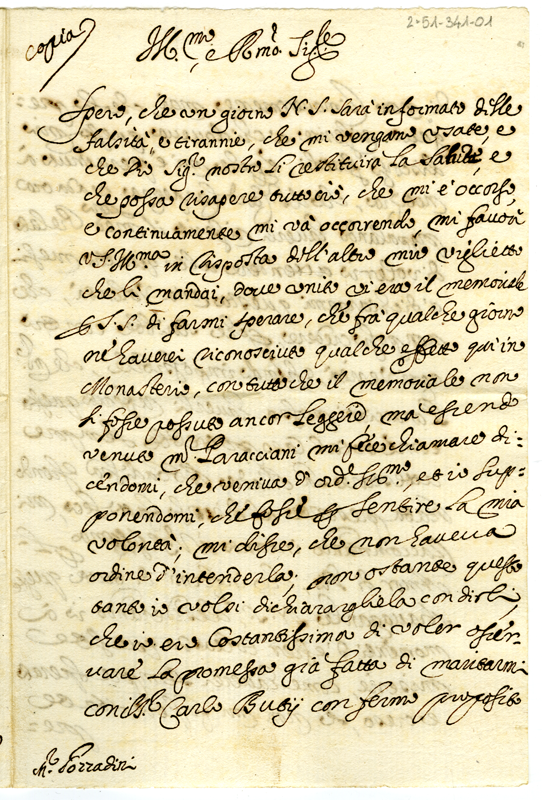 2-51-341-01
Copia
Ill.mo e Rmo Sig.re
Spero, che un giorno N. S. sarà informato delle
falsità, e tirannie, che mi vengano usate, e
che Dio Sig.re nostro li restituirà la salute, e
che possa risapere tutto ciò, che mi è occorso,
e continuamente mi và occorrendo, mi favorì
V.S. Ill.ma in risposta dell'altro mio viglietto
che li mandai, dove unito vi era il memoriale
S.S. di farmi sperare, che frà qualche giorno
ne haverei riconosciuto qualche effetto qui in
Monasterio, con tutto che il memoriale non
si fosse possuto ancor leggere, ma essendo
venuto Mr. Paracciani mi fece chiamare di=
cendomi, che veniva d'ord.e SS.mo, et io sup=
ponendomi, che fosse sentire la mia
volontà, mi disse, che non haveva
ordine d'intenderla, non ostante questo
tanto io volsi dichiarargliela con dirli,
che io ero Costantissima di voler osser=
vare la promessa già fatta di maritarmi
con il S.r Carlo Butij con fermo proposito
Mr. Corradini